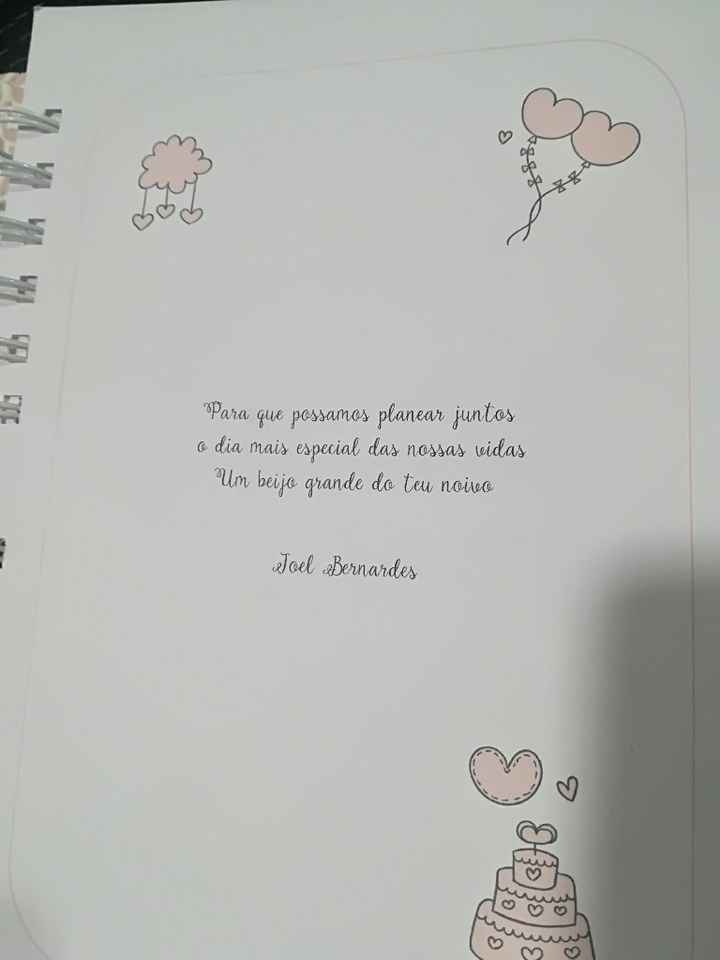 Para que possamos planear juntos
o dia mais especial das nossas vidas
Um beijo grande do teu noivo
Joel Bernardes